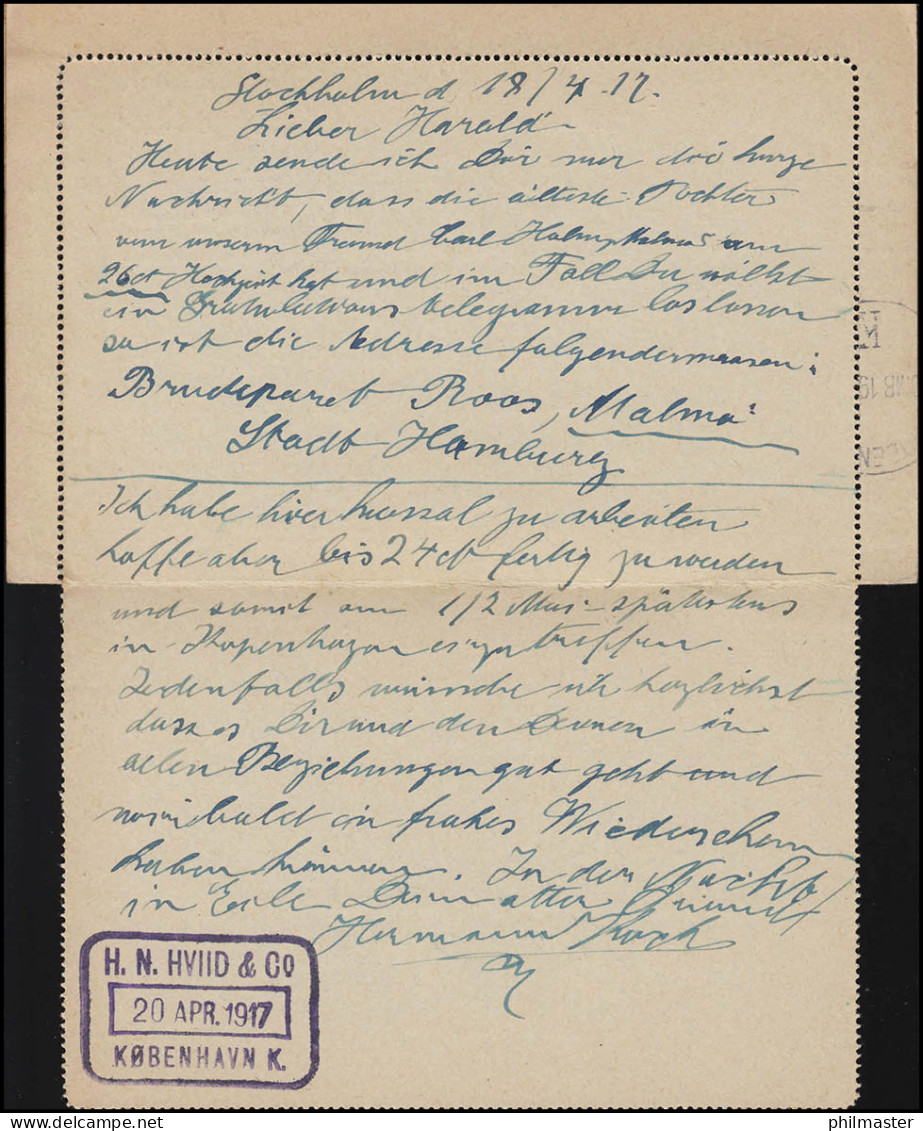 Stockholm d 18/4.17.
Lieber Harald
Heute sende ich Dir nur die kurze
Nachricht, dass die älteste Tochter
von unserm Freund Carl Holm, Malmö am
26ct Hochzeit hat und im Fall Du willst
ein Gratulations telegramm los lassen
so ist die Adresse folgendermaasen:
Brudeparet Roos, Malmö
Stadt Hamburg
Ich habe hier kolossal zu arbeiten
hoffe aber bis 24ct fertig zu werden
und somit am 1/2 Mai spätestens
in Kopenhagen einzutreffen.
Jedenfalls wünsche ich herzlichst
dass es Dir und den Deinen in
allen Beziehungen gut geht und
wir bald ein frohes Wiedersehen
haben können. In der Nacht
in Eile Dein alter Freund
Hermann Koch
H. N. HVIID & Co
20 APR. 1917
KØBENHAVN K.
philmaster